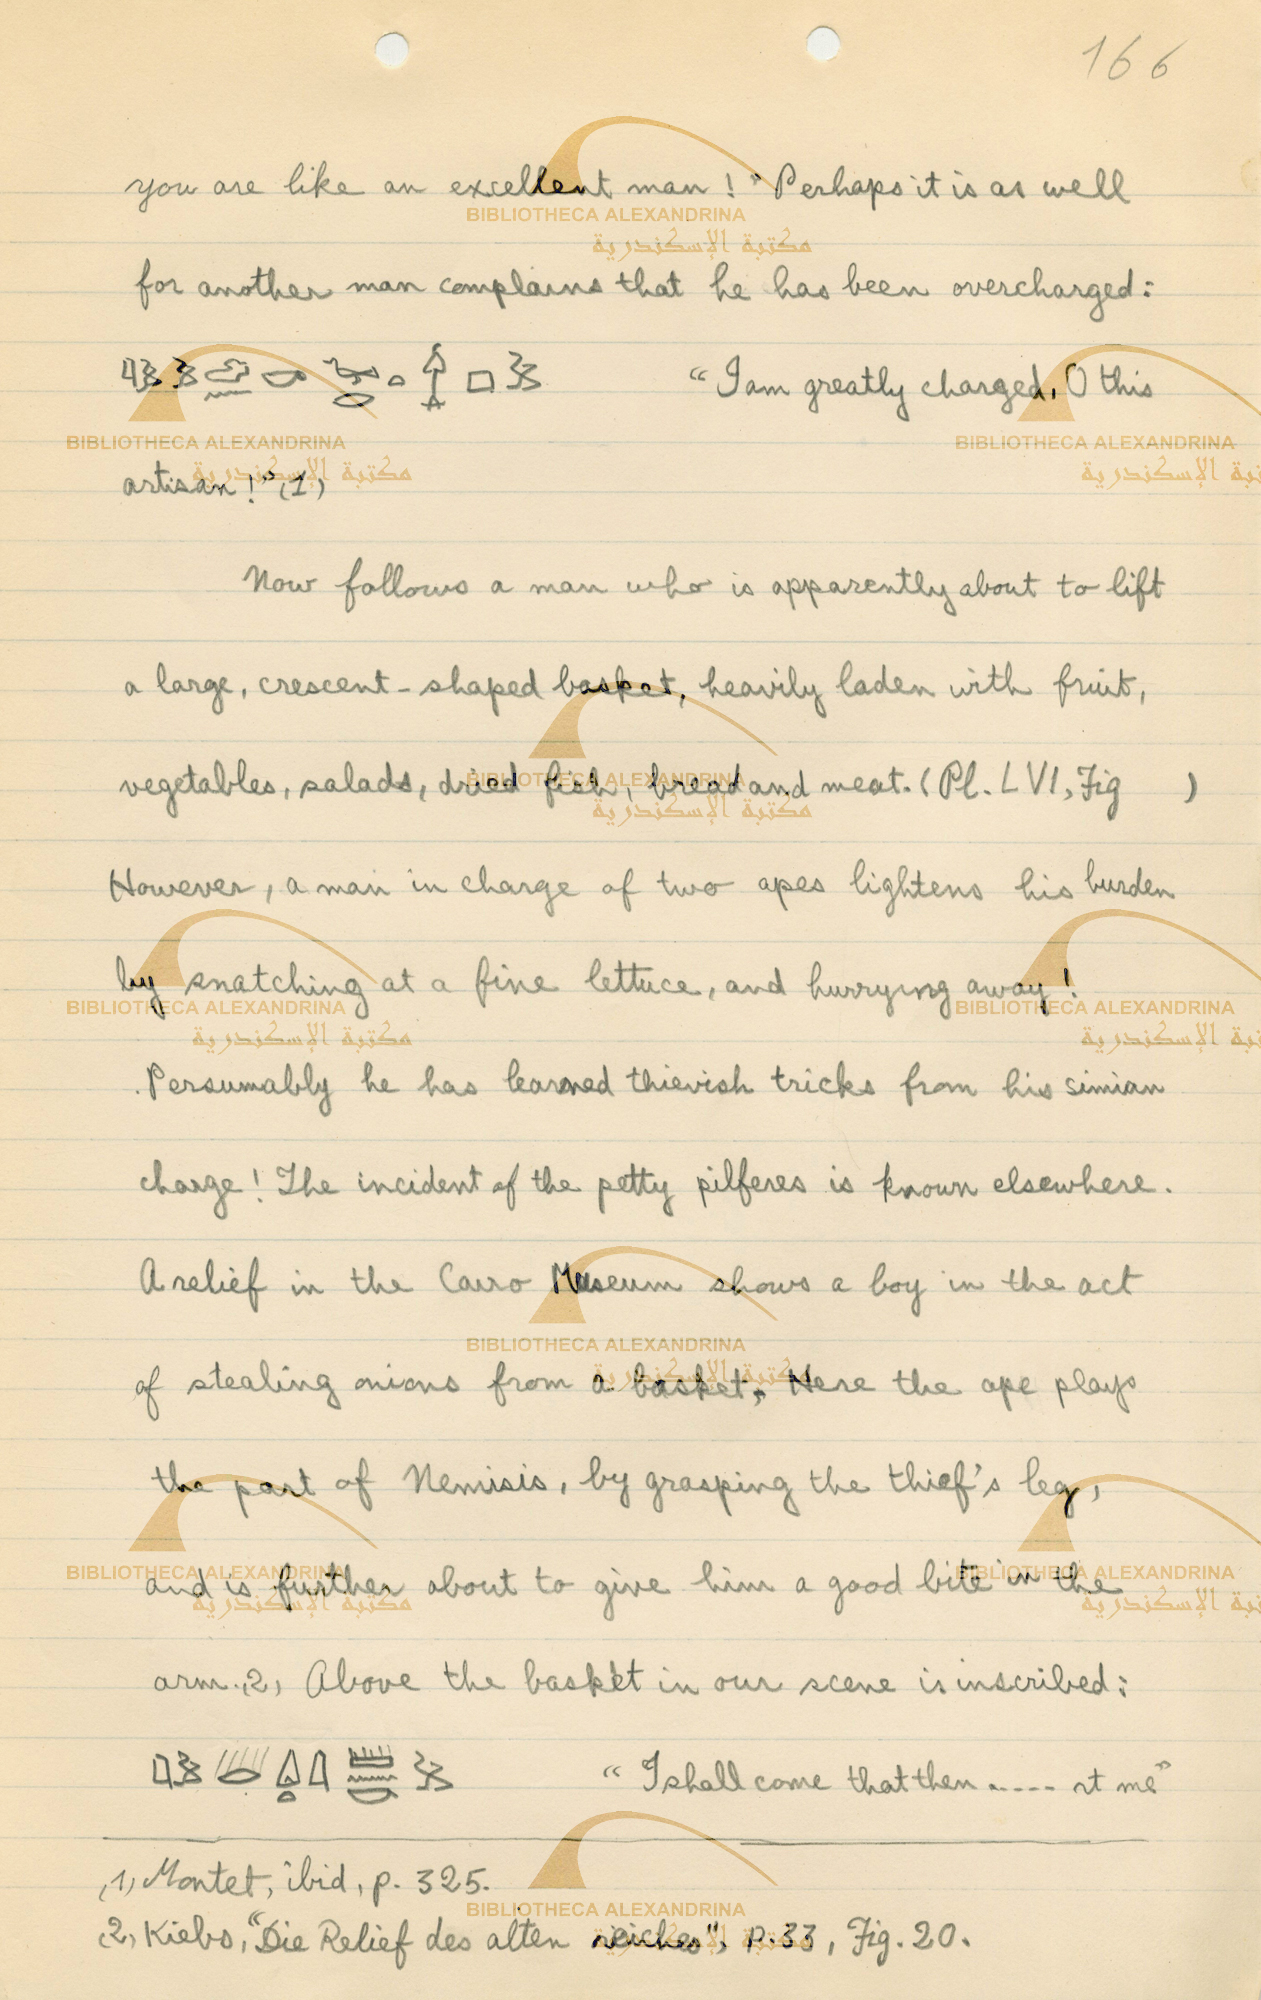 166
you are like an excellent man!" Perhaps it is as well
for another man complains that he has been overcharged:
"I am greatly charged, O this
artisan!" (1)
Now follows a man who is apparently about to lift
a large, crescent-shaped basket, heavily laden with fruit,
vegetables, salads, dried fish, bread and meat. (Pl. LVI, Fig )
However, a man in charge of two apes lightens his burden
by snatching at a fine lettuce, and hurrying away!
Persumably he has learned thievish tricks from his simian
charge! The incident of the petty pilferes is known elsewhere.
A relief in the Cairo Museum shows a boy in the act
of stealing onions from a basket, Here the ape plays
the part of Nemisis, by grasping the thief's leg,
and is further about to give him a good bite in the
arm. (2) Above the basket in our scene is inscribed:
"I shall come that then ..... at me"
(1) Montet, ibid, p. 325.
(2) Klebs, "Die Relief des alten reiches", p. 33, Fig. 20.
BIBLIOTHECA ALEXANDRINA
مكتبة الإسكندرية